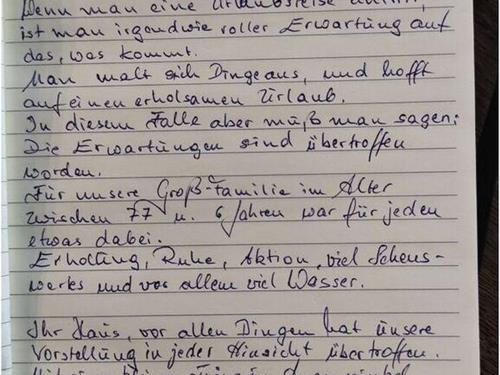 Wenn man eine Urlaubsreise antritt,
ist man irgendwie voller Erwartung auf
das, was kommt.
Man malt sich Dinge aus, und hofft
auf einen erholsamen Urlaub.
In diesem Falle aber muß man sagen:
Die Erwartungen sind übertroffen
worden.
Für unsere Groß-Familie im Alter
zwischen 77 u. 6 Jahren war für jeden
etwas dabei.
Erholung, Ruhe, Aktion, viel Sehens-
wertes und vor allem viel Wasser.
Ihr Haus, vor allen Dingen hat unsere
Vorstellung in jeder Hinsicht übertroffen.